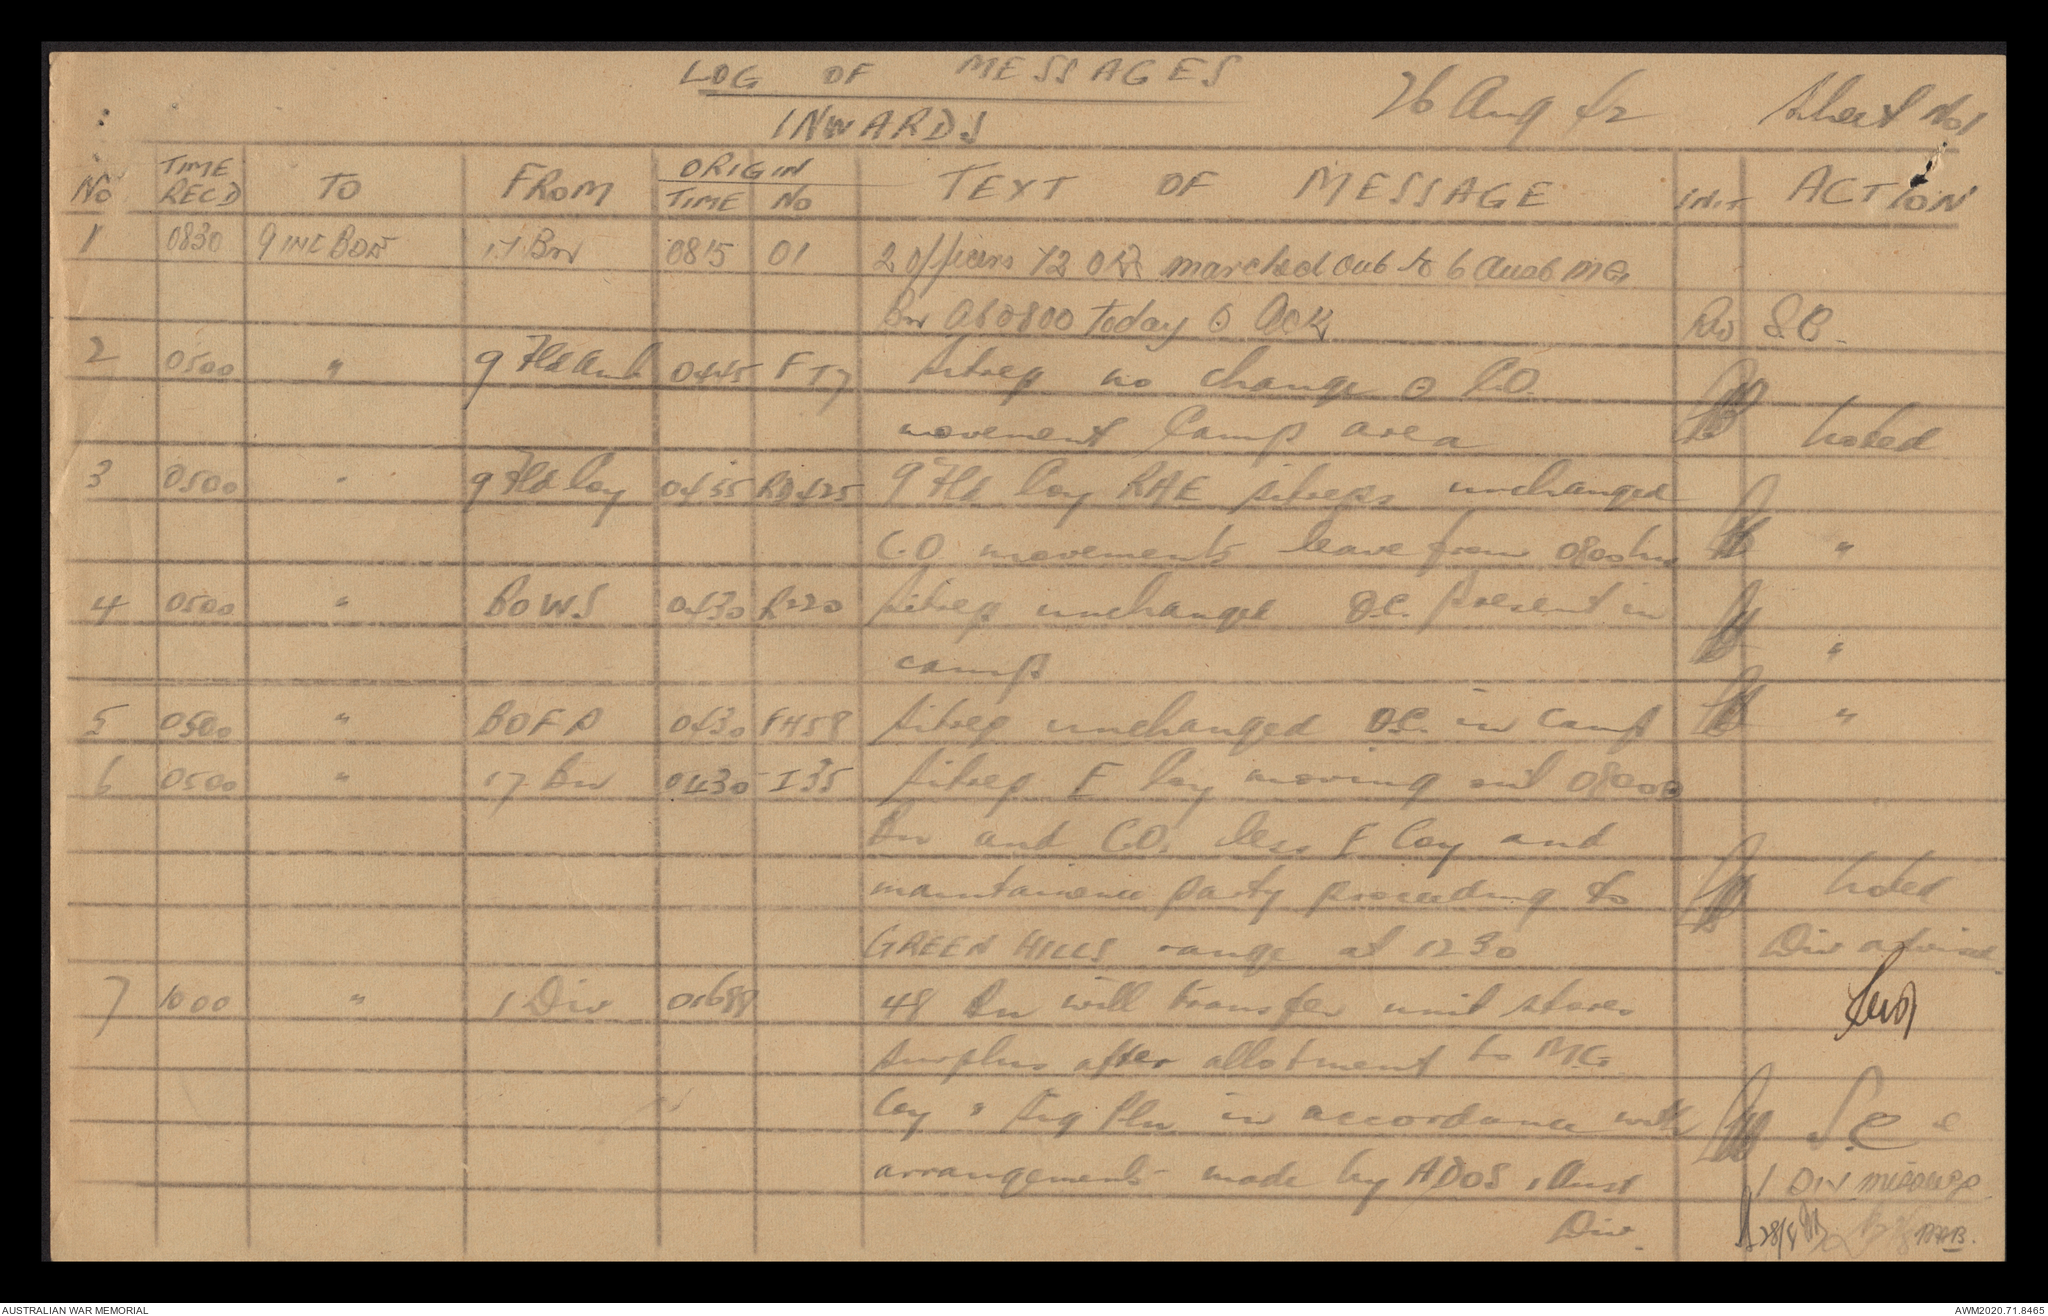 LOG OF MESSAGES
INWARDS
26 Aug 42 Sheet No 1
No TIME RECD TO FROM ORIGIN TIME No TEXT OF MESSAGE INIT ACTION
1 0830 9 INF BDE 17 Bn 0815 01 2 officers 72 ORs marched out to 6 Aust MG
Bn at 0800 today 0 Ack SC
2 0500 " 9 Fld Amb 0445 FT7 Sitrep no change 0 C.O.
movement Camp area noted
3 0500 " 9 Fld Coy 0455 RD425 9 Fld Coy RAE sitreps unchanged
C.O. movements leave from 0800 hrs "
4 0500 " BOWS 0430 R220 Sitrep unchanged O.C. present in
camp "
5 0500 " BOFA 0430 FH58 Sitrep unchanged O.C. in camp "
6 0500 " 17 Bn 0430 I35 Sitrep E Coy moving out 0800
Bn and CO. less E Coy and
maintainence party proceeding to noted
GREEN HILLS range at 1230 Div advised
7 1000 " 1 Div O1688 48 Bn will transfer unit stores
surplus after allotment to MG
Coy " Sig Pln in accordance with S.C.
arrangements made by ADOS 1 Aust 1 DIV message
Div. 28/8
AUSTRALIAN WAR MEMORIAL AWM2020.71.8465